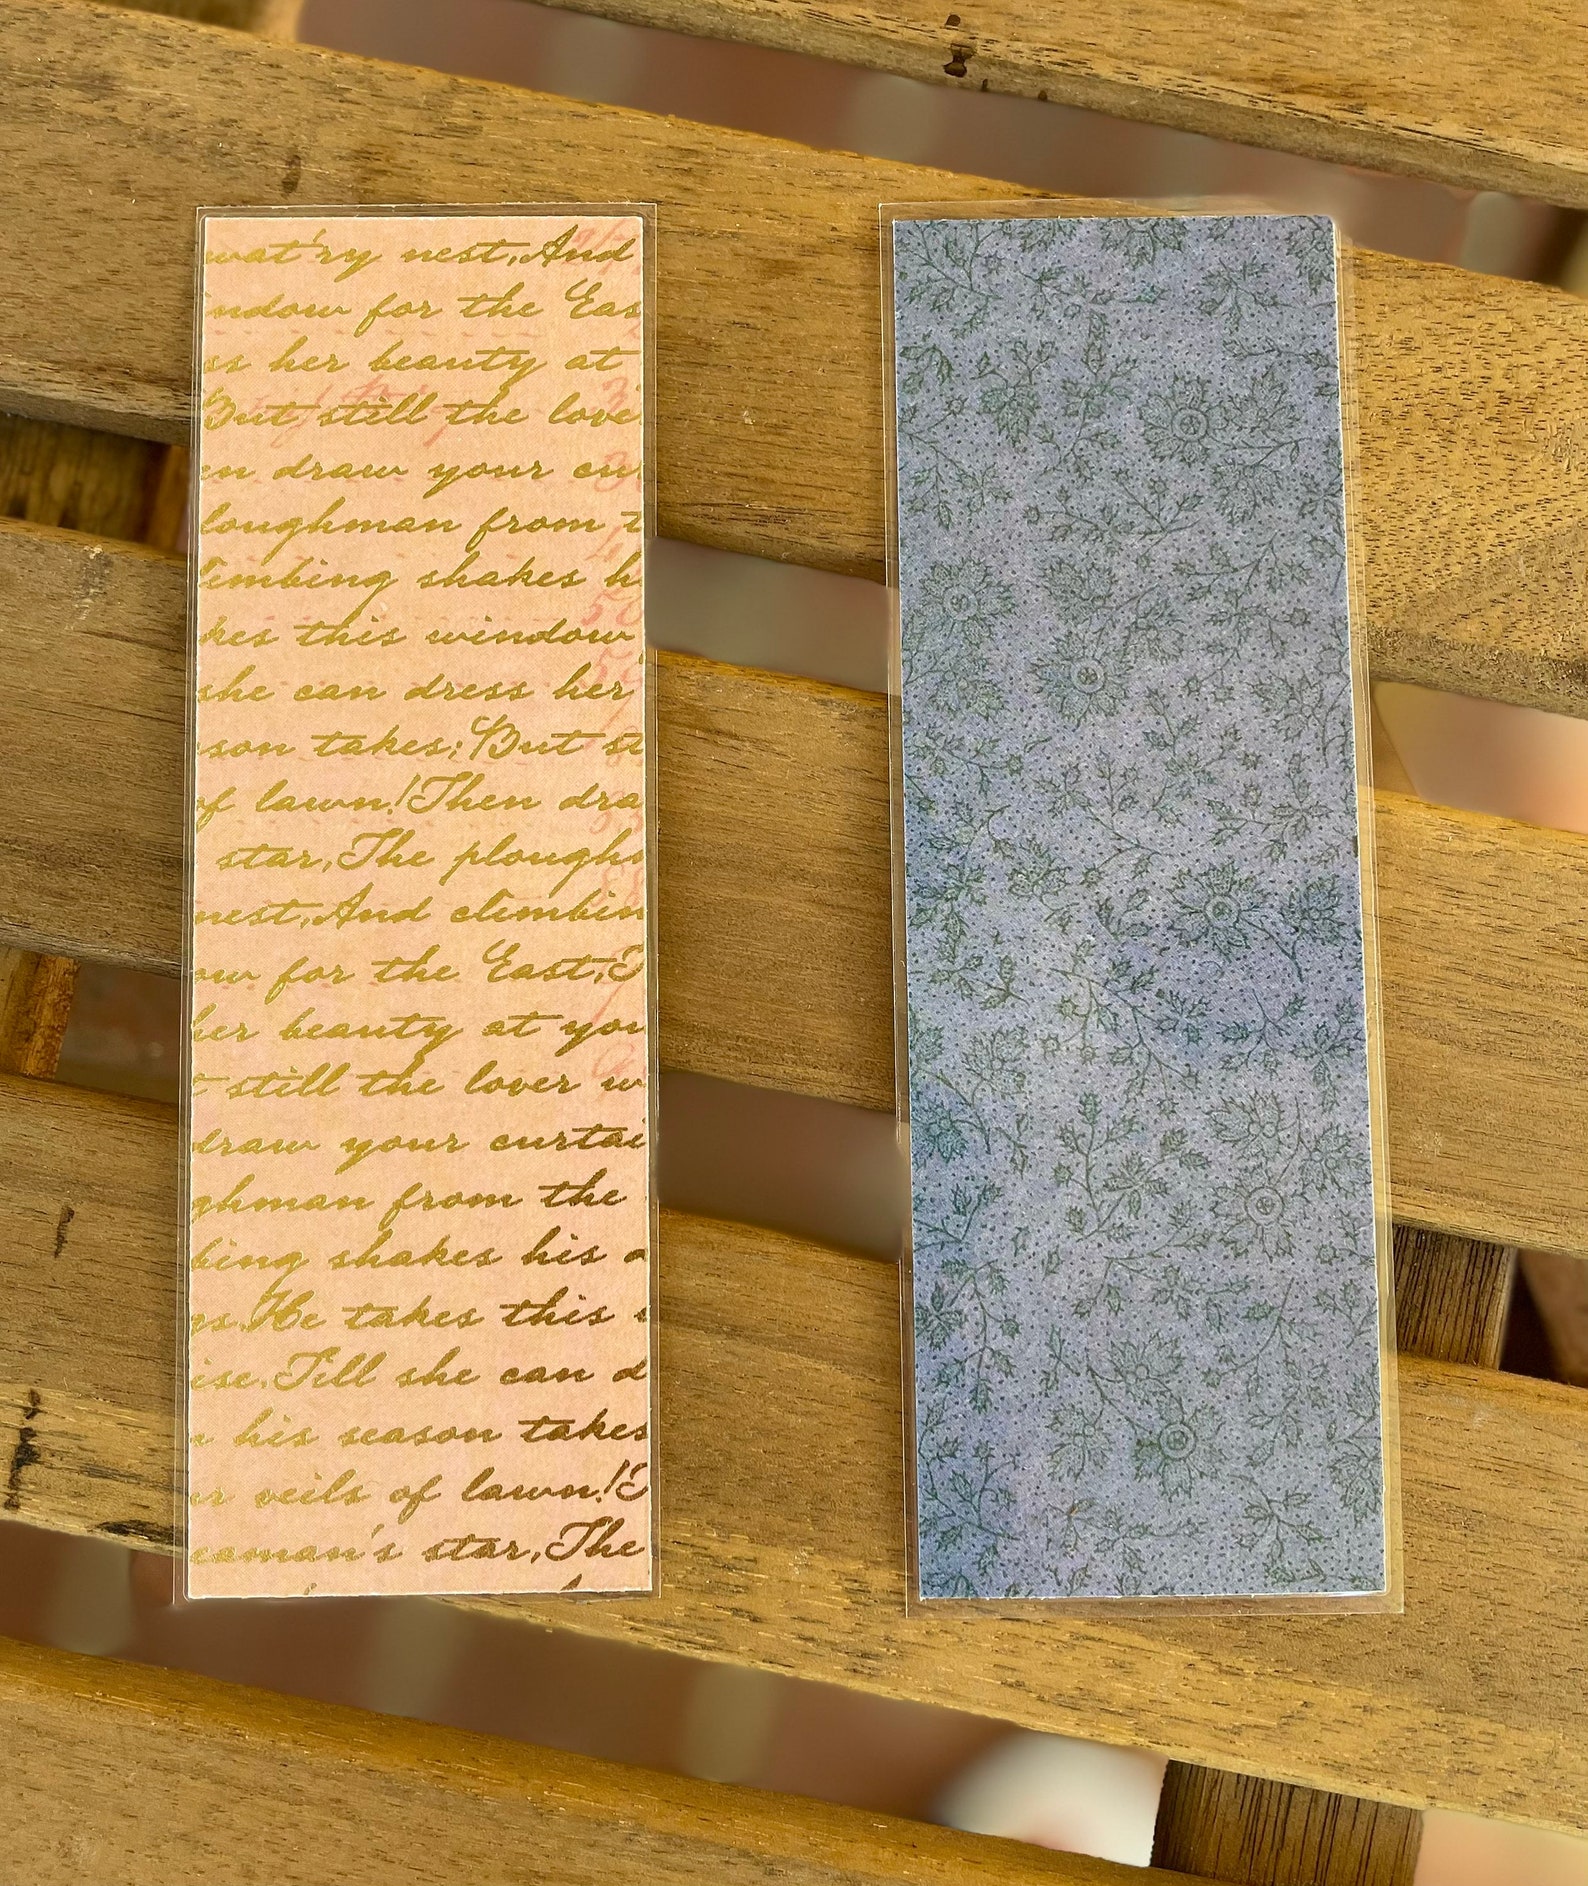 wat'ry nest, And
indow for the Eas
ss her beauty at
But still the love
en draw your cur
loughman from t
limbing shakes h
kes this window
she can dress her
ason takes; But st
of lawn! Then dra
star, The plough
nest, And climbin
ow for the East, T
her beauty at you
t still the lover w
draw your curtai
ghman from the
bing shakes his
gs. He takes this
ise. Till she can d
his season takes
ur veils of lawn! T
eaman's star, The